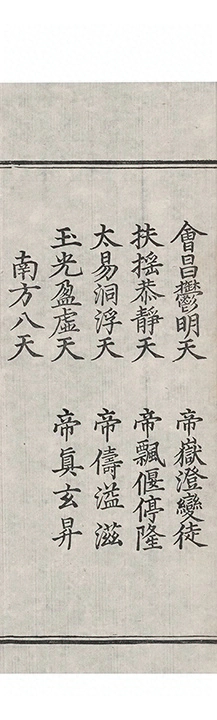 會昌鬱明天　帝嶽澄變徒
扶搖恭靜天　帝飄偃停隆
太易洞浮天　帝儔溢滋
玉光盈虛天　帝眞玄昇
南方八天